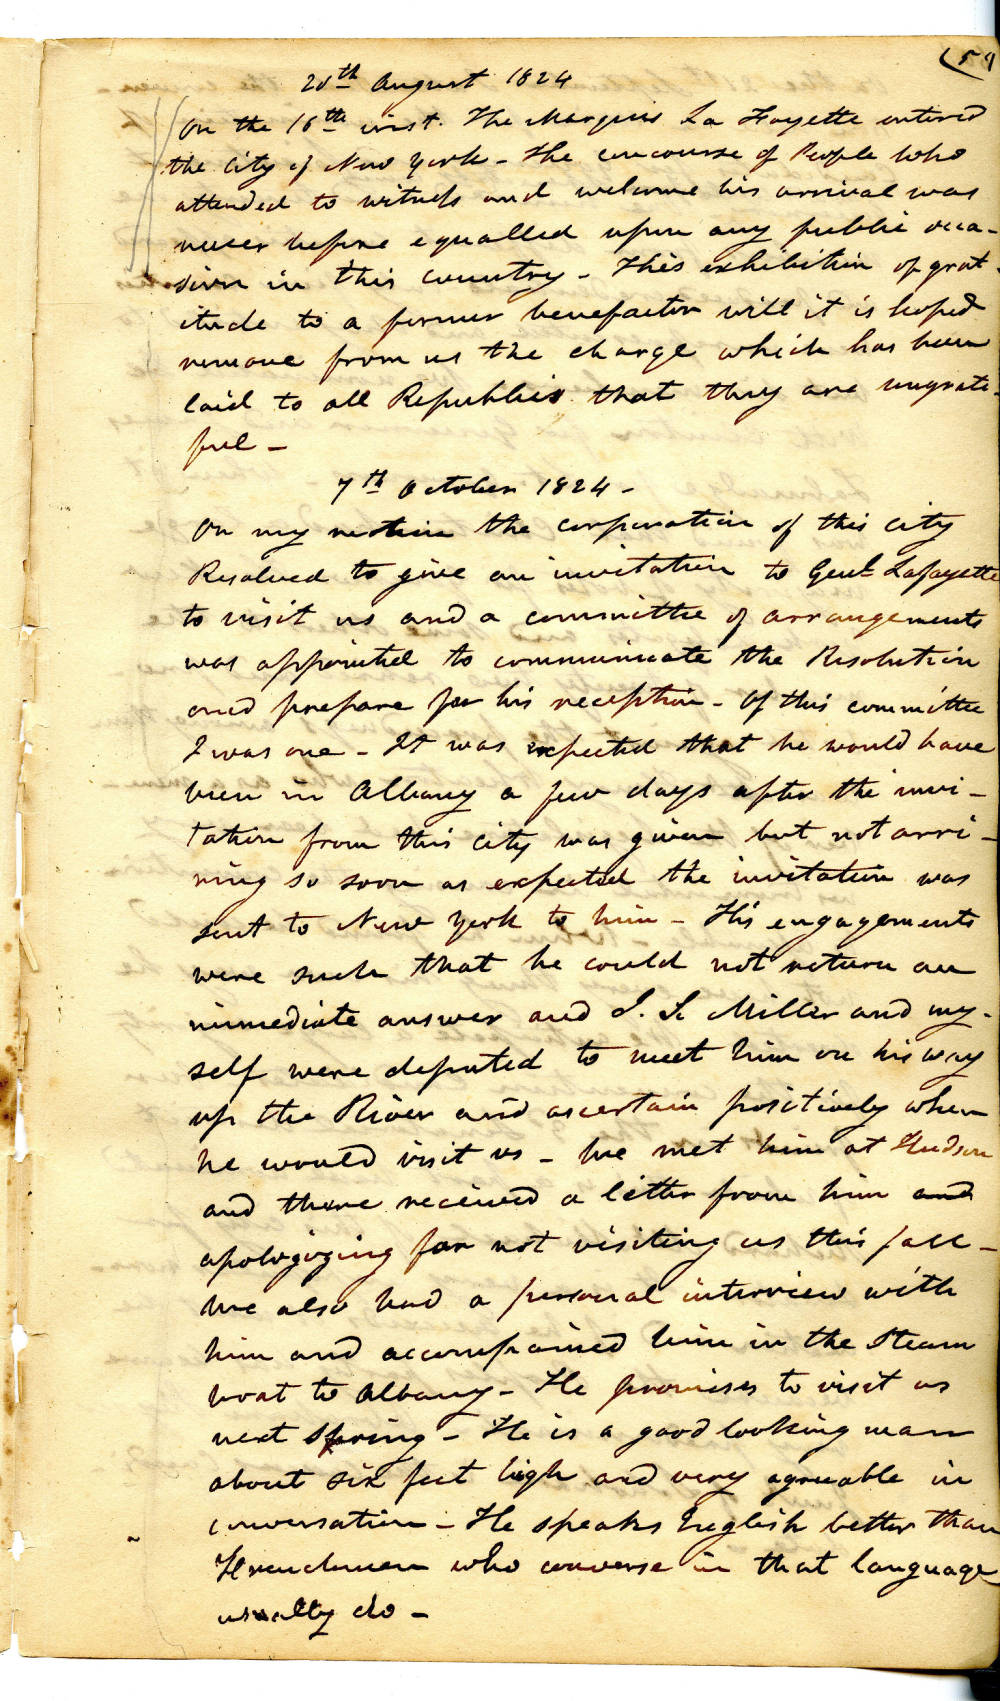 59
20th August 1824
On the 16th inst. The Marquis La Fayette entered
the City of New York - the concourse of People who
attended to witness and welcome his arrival was
never before equalled upon any public occa-
sion in this country - This exhibition of grat-
itude to a former benefactor will it is hoped
remove from us the charge which has been
laid to all Republics that they are ungrate-
ful -
7th October 1824 -
On my motion the corporation of this city
Resolved to give an invitation to Genl Lafayette
to visit us and a committee of arrangements
was appointed to communicate the Resolution
and prepare for his reception - Of this committee
I was one - It was expected that he would have
been in Albany a few days after the invi-
tation from this city was given but not arri-
ving so soon as expected the invitation was
sent to New York to him - His engagements
were such that he could not return an
immediate answer and I. S. Miller and my-
self were deputed to meet him on his way
up the River and ascertain positively when
he would visit us - We met him at Hudson
and there received a letter from him and
apologizing for not visiting us this fall -
We also had a personal interview with
him and accompained him in the Steam
boat to Albany - He promises to visit us
next Spring - He is a good looking man
about six feet high and very agreeable in
conversation - He speaks English better than
Frenchmen who converse in that language
usually do -